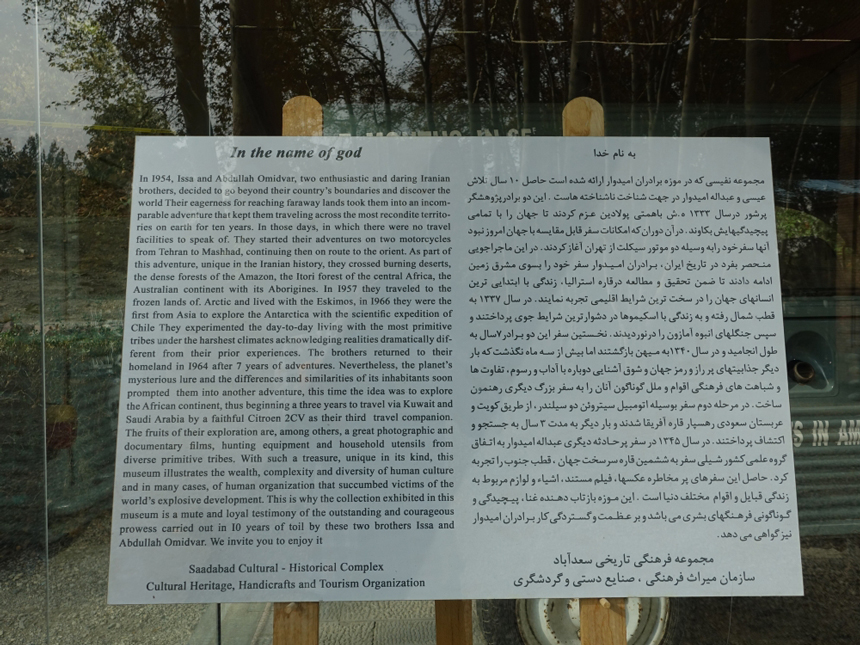 In the name of god
In 1954, Issa and Abdullah Omidvar, two enthusiastic and daring Iranian
brothers, decided to go beyond their country's boundaries and discover the
world Their eagerness for reaching faraway lands took them into an incom-
parable adventure that kept them traveling across the most recondite territo-
ries on earth for ten years. In those days, in which there were no travel
facilities to speak of. They started their adventures on two motorcycles
from Tehran to Mashhad, continuing then on route to the orient. As part of
this adventure, unique in the Iranian history, they crossed burning deserts,
the dense forests of the Amazon, the Itori forest of the central Africa, the
Australian continent with its Aborigines. In 1957 they traveled to the
frozen lands of. Arctic and lived with the Eskimos, in 1966 they were the
first from Asia to explore the Antarctica with the scientific expedition of
Chile They experimented the day-to-day living with the most primitive
tribes under the harshest climates acknowledging realities dramatically dif-
ferent from their prior experiences. The brothers returned to their
homeland in 1964 after 7 years of adventures. Nevertheless, the planet's
mysterious lure and the differences and similarities of its inhabitants soon
prompted them into another adventure, this time the idea was to explore
the African continent, thus beginning a three years to travel via Kuwait and
Saudi Arabia by a faithful Citroen 2CV as their third travel companion.
The fruits of their exploration are, among others, a great photographic and
documentary films, hunting equipment and household utensils from
diverse primitive tribes. With such a treasure, unique in its kind, this
museum illustrates the wealth, complexity and diversity of human culture
and in many cases, of human organization that succumbed victims of the
world's explosive development. This is why the collection exhibited in this
museum is a mute and loyal testimony of the outstanding and courageous
prowess carried out in 10 years of toil by these two brothers Issa and
Abdullah Omidvar. We invite you to enjoy it
Saadabad Cultural - Historical Complex
Cultural Heritage, Handicrafts and Tourism Organization
به نام خدا
مجموعه نفیسی که در موزه برادران امیدوار ارائه شده است حاصل ۱۰ سال تلاش
عیسی و عبداله امیدوار در جهت شناخت ناشناخته هاست . این دو برادرپژوهشگر
پرشور درسال ۱۳۳۳ ه.ش باهمتی پولادین عزم کردند تا جهان را با تمامی
پیچیدگیهایش بکاوند. در آن دوران که امکانات سفر قابل مقایسه با جهان امروز نبود
آنها سفرخود رابه وسیله دو موتور سیکلت از تهران آغاز کردند. در این ماجراجویی
منحصر بفرد در تاریخ ایران، برادران امیدوار سفر خود را بسوی مشرق زمین
ادامه دادند تا ضمن تحقیق و مطالعه درقاره استرالیا، زندگی با ابتدایی ترین
انسانهای جهان را در سخت ترین شرایط اقلیمی تجربه نمایند. در سال ۱۳۳۷ به
قطب شمال رفته و به زندگی با اسکیموها در دشوارترین شرایط جوی پرداختند و
سپس جنگلهای انبوه آمازون را درنوردیدند. نخستین سفر این دو برادر۷سال به
طول انجامید و در سال ۱۳۴۰به میهن بازگشتند اما بیش از سه ماه نگذشت که بار
دیگر جذابیتهای پر راز و رمز جهان و شوق آشنایی دوباره با آداب و رسوم، تفاوت ها
و شباهت های فرهنگی اقوام و ملل گوناگون آنان را به سفر بزرگ دیگری رهنمون
ساخت. در مرحله دوم سفر بوسیله اتومبیل سیتروئن دو سیلندر، از طریق کویت و
عربستان سعودی رهسپار قاره آفریقا شدند و بار دیگر به مدت ۳ سال به جستجو و
اکتشاف پرداختند. در سال ۱۳۴۵ در سفر پرحادثه دیگری عبداله امیدوار به اتفاق
گروه علمی کشور شیلی سفر به ششمین قاره سرسخت جهان ، قطب جنوب را تجربه
کرد. حاصل این سفرهای پر مخاطره عکسها، فیلم مستند، اشیاء و لوازم مربوط به
زندگی قبایل و اقوام مختلف دنیا است . این موزه بازتاب دهنده غنا، پیچیدگی و
گوناگونی فرهنگهای بشری می باشد و بر عظمت و گستردگی کار برادران امیدوار
نیز گواهی می دهد.
مجموعه فرهنگی تاریخی سعدآباد
سازمان میراث فرهنگی ، صنایع دستی و گردشگری
IN AM